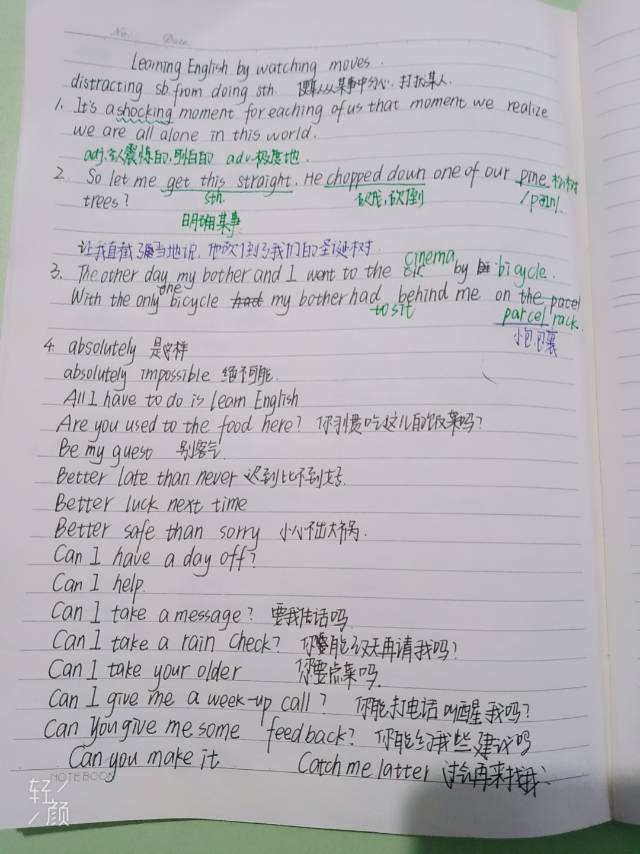 No. Date
Learning English by watching moves.
distracting sb from doing sth 使某人从某事中分心,打扰某人.
1. It's a shocking moment for eaching of us that moment we realize
we are all alone in this world.
adj.令人震惊的, 明白的 adv.极度地.
2. So let me get this straight. He chopped down one of our pine 松树
sth. 砍伐,砍倒 /paɪn/.
trees?
明确某事
让我直截了当地说,他砍倒了我们的圣诞树.
3. The other day my bother and I went to the cinema by bicycle.
With the only one bicycle my bother had to sit behind me on the parcel
parcel rack.
小包包裹
4. absolutely 是这样
absolutely impossible 绝不可能
All I have to do is learn English
Are you used to the food here? 你习惯吃这儿的饭菜吗?
Be my guest 别客气
Better late than never 迟到比不到好
Better luck next time
Better safe than sorry 小心不出大祸.
Can I have a day off?
Can I help
Can I take a message? 要我传话吗
Can I take a rain check? 你能改天再请我吗?
Can I take your older 你要点菜吗
Can I give me a week-up call? 你能打电话叫醒我吗?
Can you give me some feedback? 你能给我些建议吗
Can you make it Catch me latter 过会再来找我
NOTEBOOK
轻颜